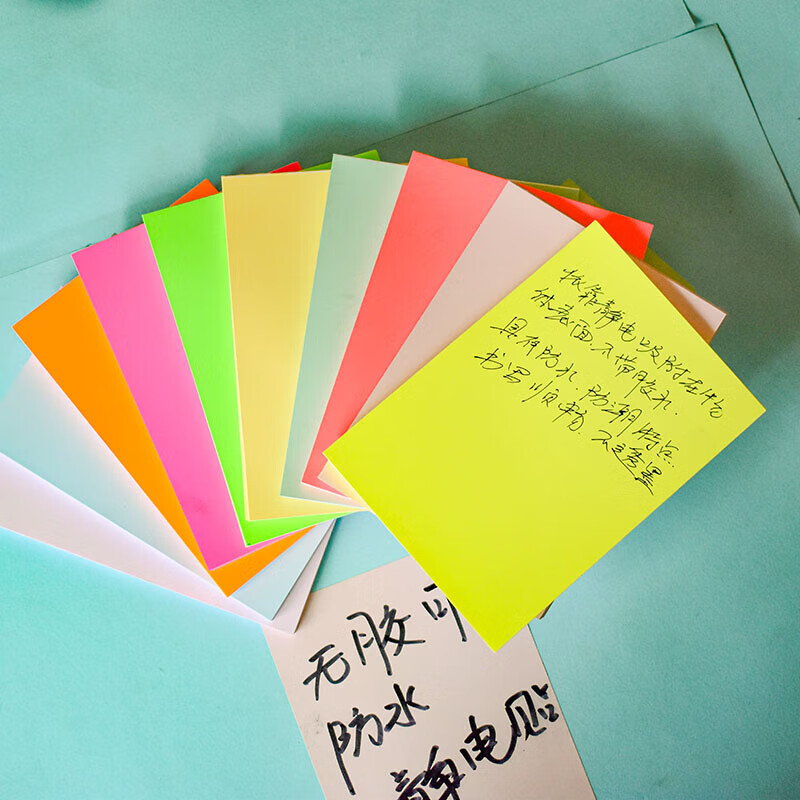 依靠静电吸附在什么
体表面.不带胶水.
具有防水.防潮特点
书写顺畅.不透墨
无胶可
防水
静电贴